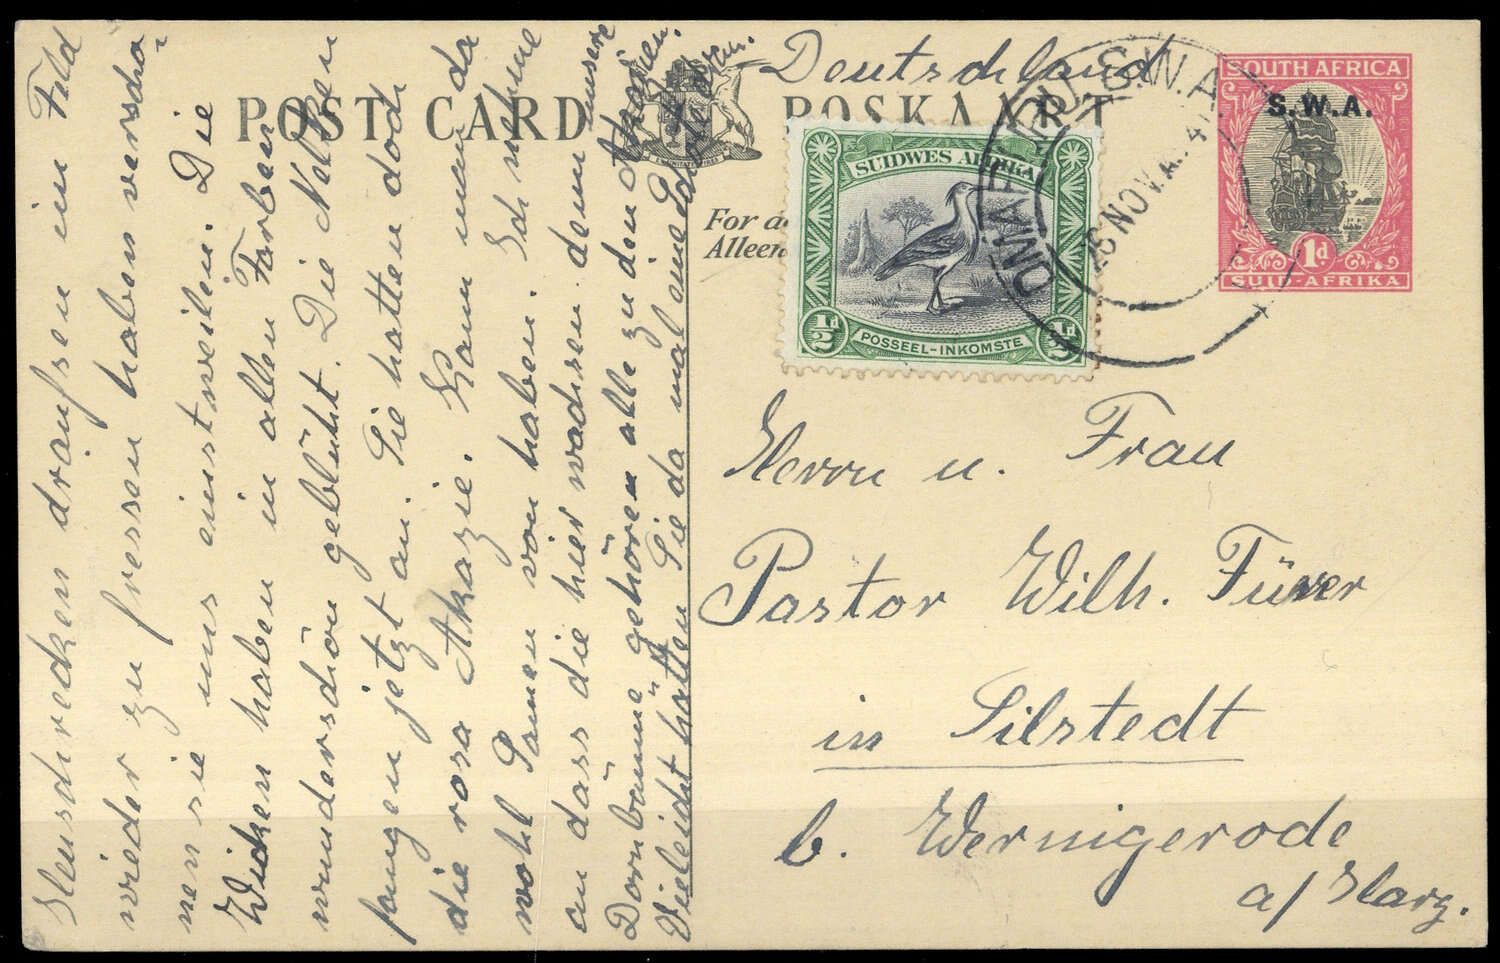 POST CARD
POSKAART
Deutschland
SOUTH AFRICA
S.W.A.
1d
SUID-AFRIKA
SUIDWES AFRIKA
½d ½d
POSSEEL-INKOMSTE
S.W.A.
26 NOV
For a
Alleen
Herrn u. Frau
Pastor Wilh. Führer
in Silstedt
b. Wernigerode
a/Harz.
Heuschrecken draußen im Feld
wieder zu fressen haben verscho-
nen sie uns einstweilen. Die
Wicken haben in allen Farben
wunderschön geblüht. Die Nelken
fangen jetzt an. Sie hatten doch
die rosa Akazie. Kann man da
wohl Samen von haben. Ich nehme
an dass die hier wachsen denn unsere
Dornbäume gehören alle zu den Akazien.
Vieleicht hätten Sie da mal eine